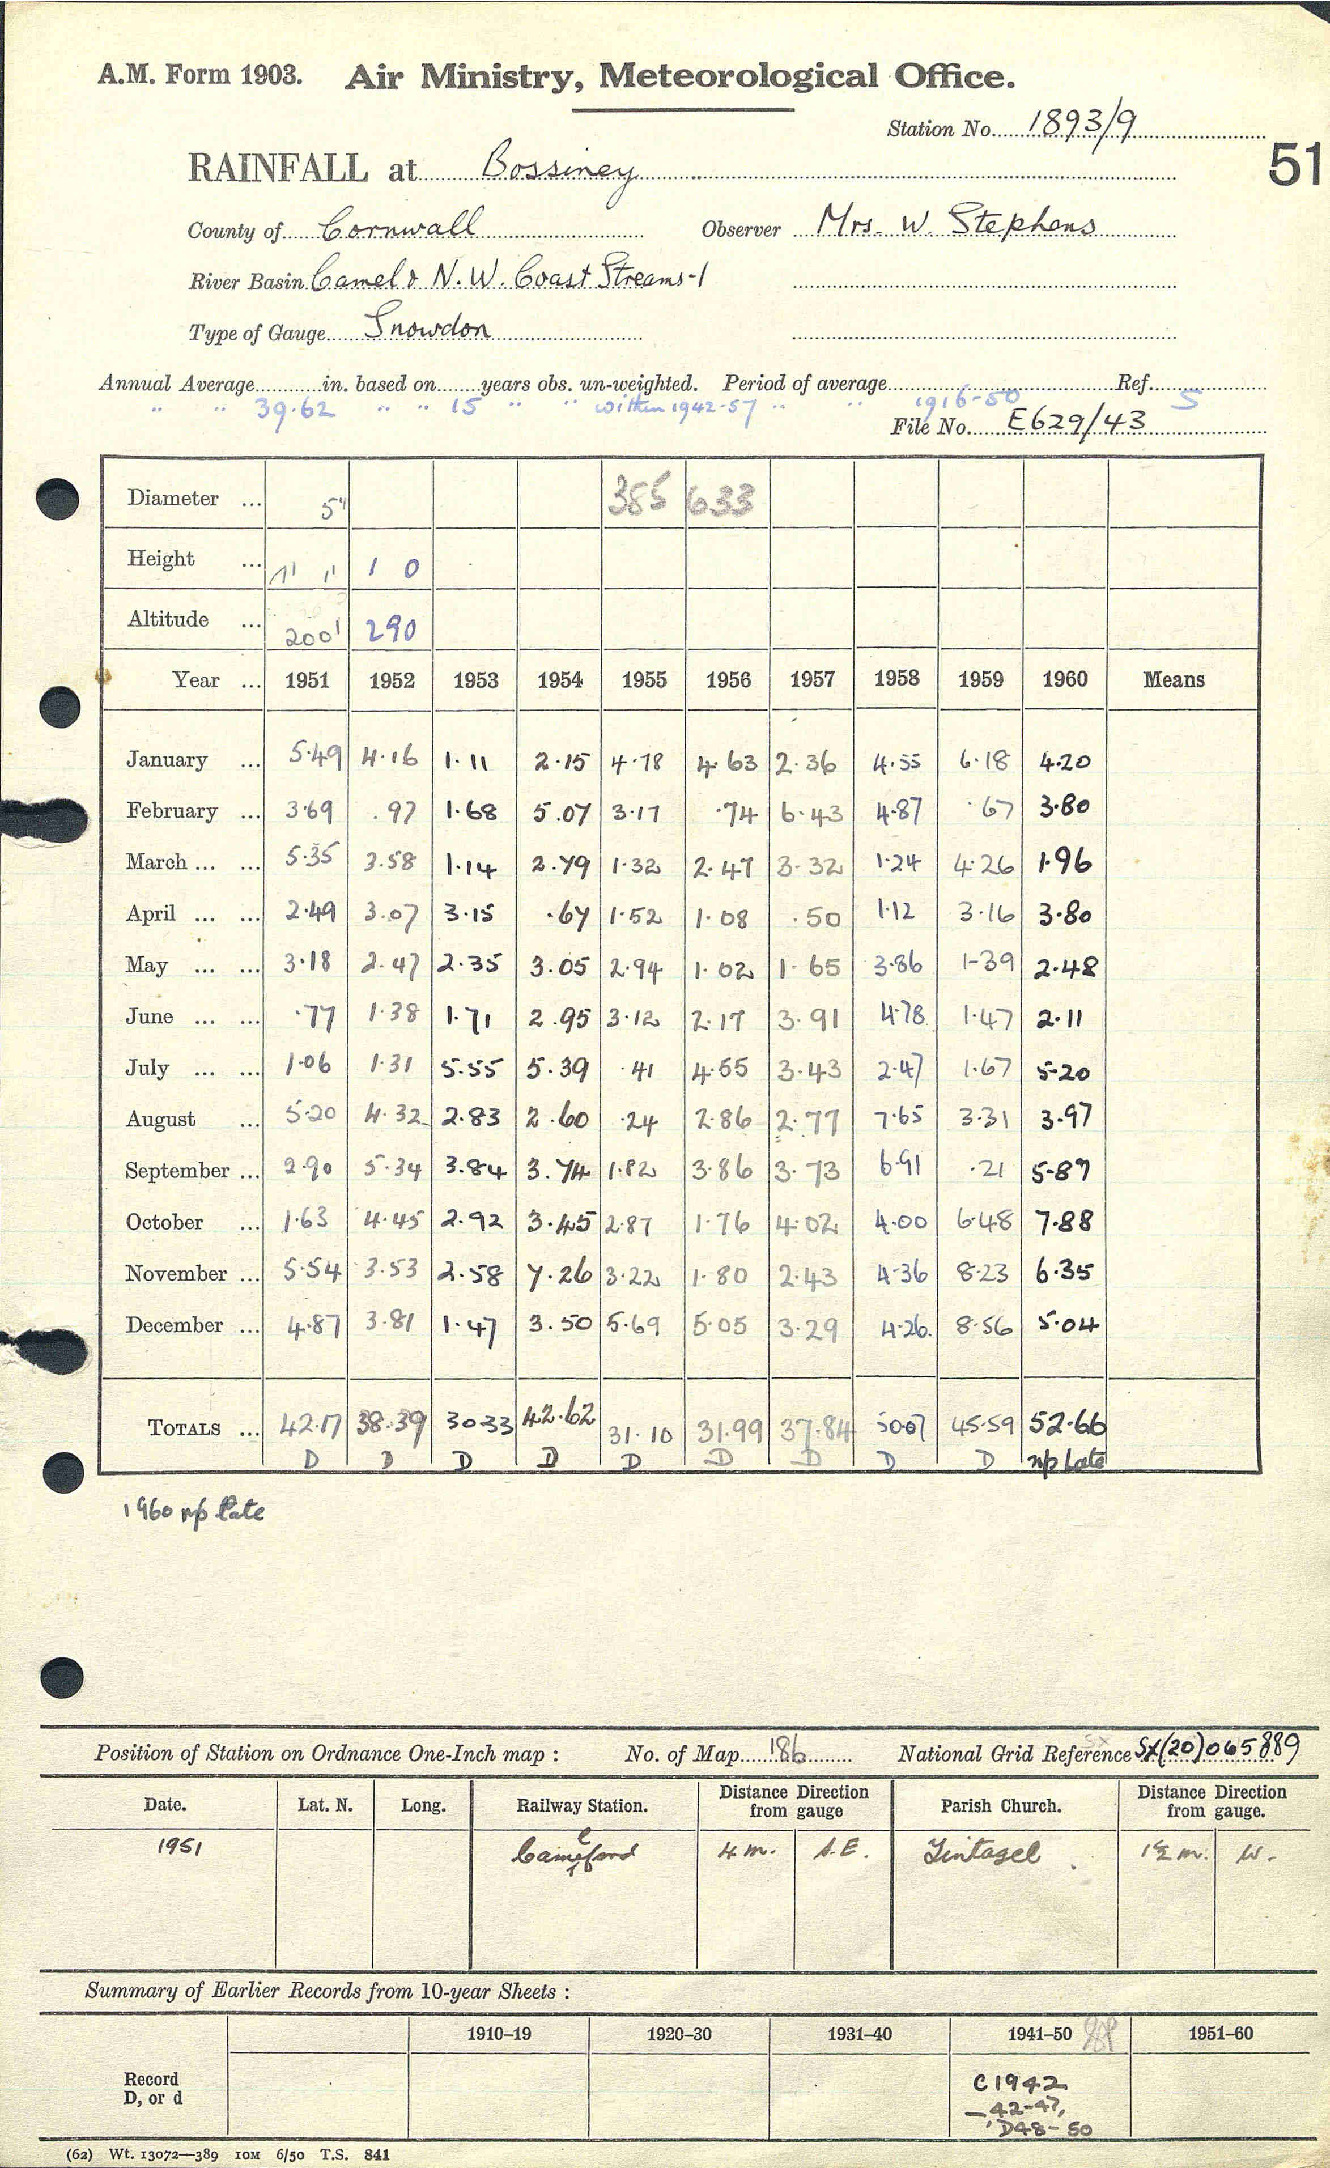 A.M. Form 1903. Air Ministry, Meteorological Office.
Station No. 1893/9
51
RAINFALL at Bossiney
County of Cornwall Observer Mrs. W. Stephens
River Basin Camel & N.W. Coast Streams-1
Type of Gauge Snowdon
Annual Average in. based on years obs. un-weighted. Period of average Ref.
" " 39.62 " " 15 " " within 1942-57 " " 1916-50 5
File No. E629/43
Diameter ... 5" 385 633
Height ... 1' 1" 1 0
Altitude ... 200' 290
Year ... 1951 1952 1953 1954 1955 1956 1957 1958 1959 1960 Means
January ... 5.49 4.16 1.11 2.15 4.78 4.63 2.36 4.55 6.18 4.20
February ... 3.69 .97 1.68 5.07 3.17 .74 6.43 4.87 .67 3.80
March ... ... 5.35 3.58 1.14 2.79 1.32 2.47 3.32 1.24 4.26 1.96
April ... ... 2.49 3.07 3.15 .67 1.52 1.08 .50 1.12 3.16 3.80
May ... ... 3.18 2.47 2.35 3.05 2.94 1.02 1.65 3.86 1.39 2.48
June ... ... .77 1.38 1.71 2.95 3.12 2.17 3.91 4.78 1.47 2.11
July ... ... 1.06 1.31 5.55 5.39 .41 4.55 3.43 2.47 1.67 5.20
August ... 5.20 4.32 2.83 2.60 .24 2.86 2.77 7.65 3.31 3.97
September ... 2.90 5.34 3.84 3.74 1.82 3.86 3.73 6.91 .21 5.87
October ... 1.63 4.45 2.92 3.45 2.87 1.76 4.02 4.00 6.48 7.88
November ... 5.54 3.53 2.58 7.26 3.22 1.80 2.43 4.36 8.23 6.35
December ... 4.87 3.81 1.47 3.50 5.69 5.05 3.29 4.26 8.56 5.04
TOTALS ... 42.17 38.39 30.33 42.62 31.10 31.99 37.84 50.07 45.59 52.66
D D D D D D D D D n/p late
1960 n/p late
Position of Station on Ordnance One-Inch map : No. of Map 186 National Grid Reference SX(20)065889
Date. Lat. N. Long. Railway Station. Distance Direction from gauge Parish Church. Distance Direction from gauge.
1951 Camelford 4 m. S.E. Tintagel 1½ m. W.
Summary of Earlier Records from 10-year Sheets :
1910–19 1920–30 1931–40 1941–50 1951–60
Record D, or d
C1942
-42-47,
D48-50
(62) Wt. 13072—389 10M 6/50 T.S. 841